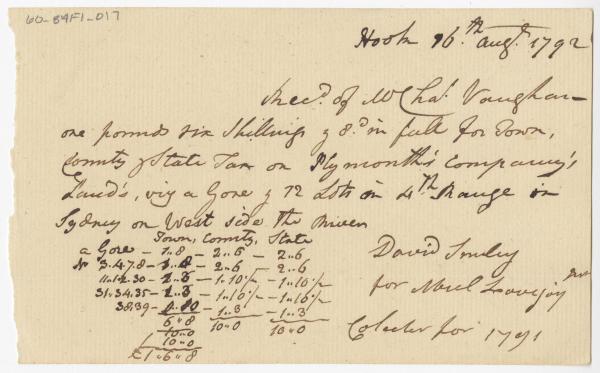 60-84F1-017
Hook 16th augt. 1792
Recd. of Mr Chas. Vaughan
one pounds six Shillings & 8d in full for Town,
County & State Tax on Plymouth's Company's
Land's, viz a Gore & 12 Lots in 4th Range in
Sydney on West side the River
Town, County, State
a Gore - 1..8 - 2..6 - 2..6
No 3.4.7.8 - 2..6 - 2..6
11.12.30 - 1..10½ - 1..10½
31.34.35 - 1..10½ - 1..10½
38.39 - 1..3 - 1..3
6..8 10..0 10..0
10..0
10..0
£1..6..8
David Smiley
for Abiel Lovejoy
Colecter for 1791